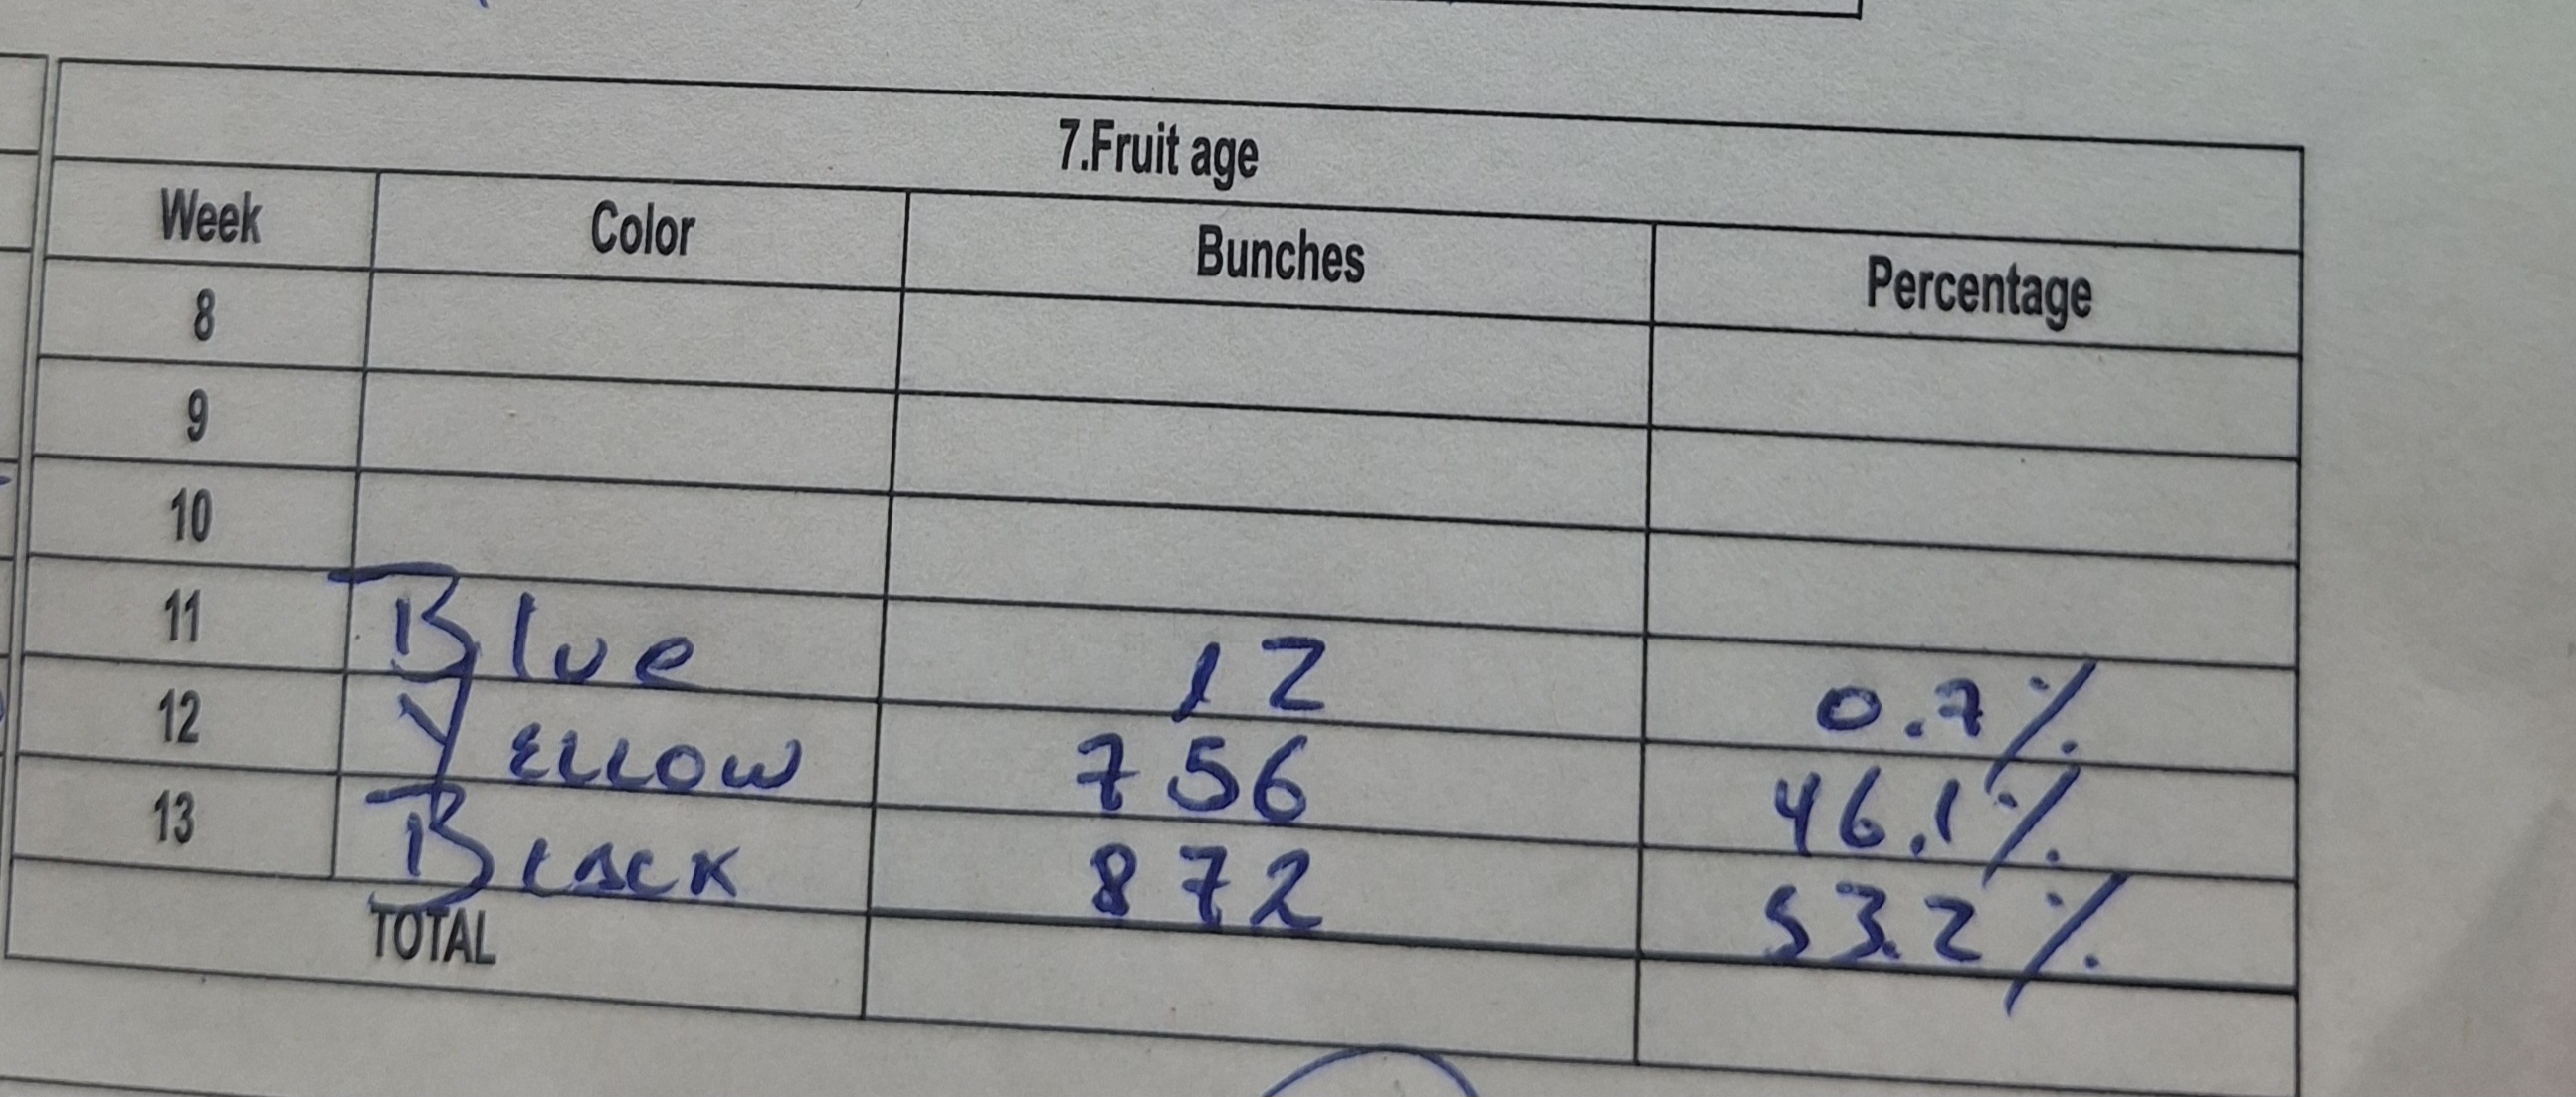 7.Fruit age
Week Color Bunches Percentage
8
9
10
11 Blue 12 0.7%
12 YELLOW 756 46.1%
13 BLACK 872 53.2%
TOTAL